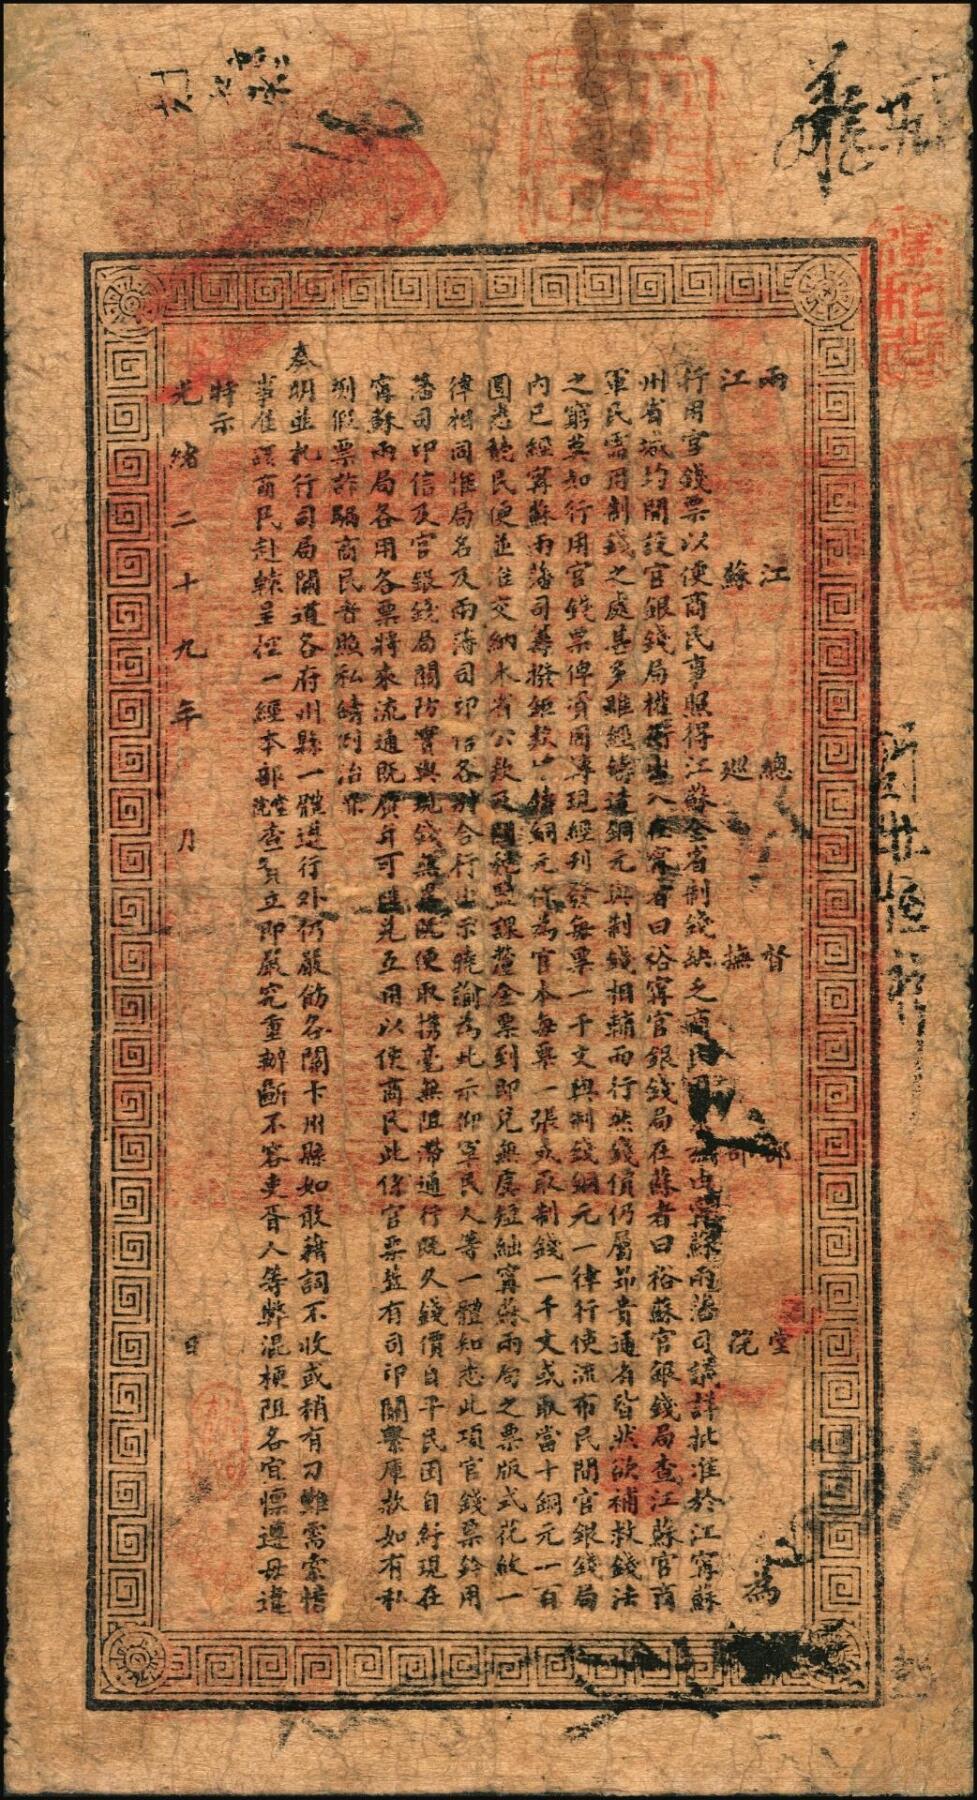 兩江總督部堂
江蘇巡撫部院為
行用官錢票以便商民事照得江蘇全省制錢缺乏商民由甯蘇兩藩司議詳批准於江甯蘇
州省城均開設官銀錢局權出入在甯者曰裕甯官銀錢局在蘇者曰裕蘇官銀錢局查江蘇官商
軍民需用制錢之處甚多雖經鑄造銅元與制錢相輔而行然錢價仍屬昂貴通省皆然欲補救錢法
之窮莫如行用官錢票俾資周轉現經刊發每票一千文與制錢銅元一律行使流布民間官銀錢局
內已經甯蘇兩藩司籌撥鉅款儲銅元作為官本每票一張或取制錢一千文或取當十銅元一百
圓悉聽民便並准交納本省公款及關稅鹽課釐金票到即兌無虞短絀甯蘇兩局之票版式花紋一
律相同惟局名及兩藩司印信各別合行出示曉諭為此示仰軍民人等一體知悉此項官錢票鈐用
藩司印信及官銀錢局關防實與現錢無異既便取攜毫無阻滯通行既久錢價自平民困自紓現在
甯蘇兩局各用各票將來流通既廣亦可匯兌互用以便商民此係官票蓋有司印關繫庫款如有私
刻假票詐騙商民者照私鑄例治罪
奏明並札行司局關道各府州縣一體遵行外仍嚴飭各關卡州縣如敢藉詞不收或稍有刁難需索情
事准該商民赴轅呈控一經本部堂院查實立即嚴究重辦斷不容吏胥人等弊混梗阻各宜懍遵毋違
特示
光緒二十九年 月 日